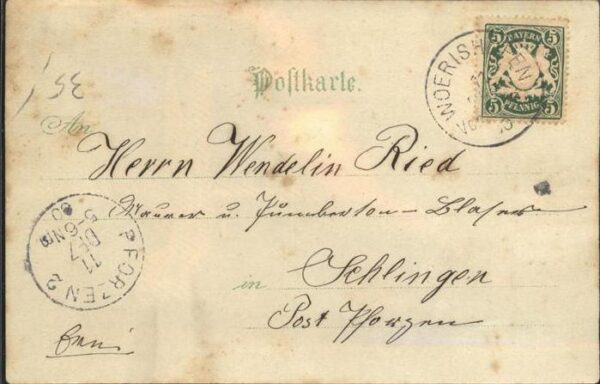 Postkarte.
BAYERN
5 5
5 PFENNIG 5
WOERISHOFEN
An
Herrn Wendelin Ried
Maurer u. Bumberton-Blaser
in Schlingen
Post Pforzen
PFORZEN 2
11 DEZ
5-6 NM
00